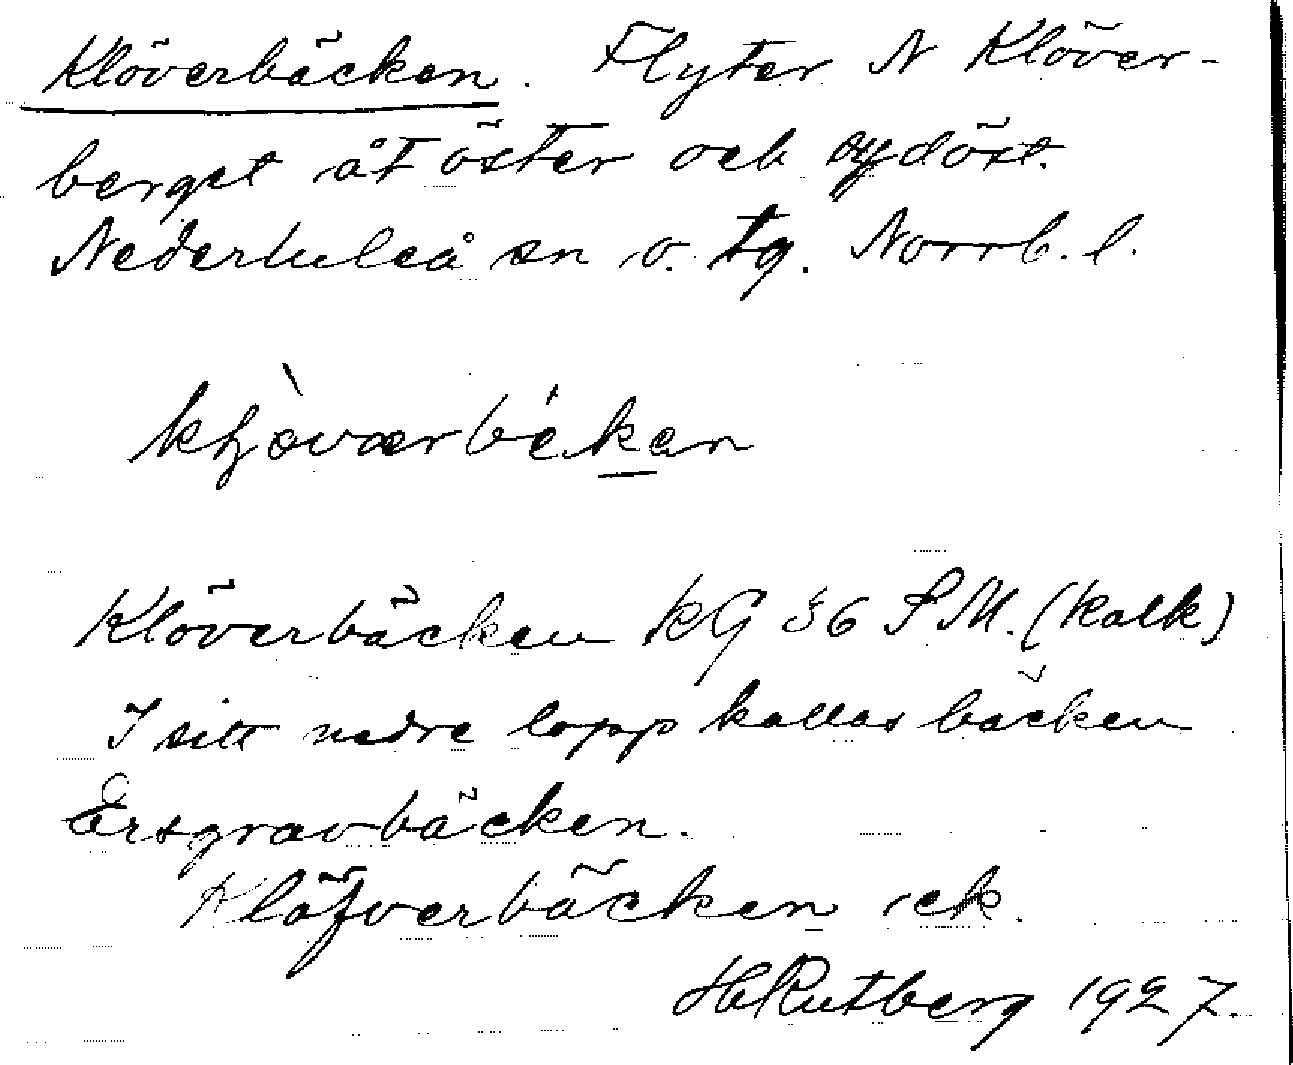 Klöverbäcken. Flyter N Klöver-
berget åt öster och sydöst.
Nederluleå sn o. tg. Norrb. l.
kḷòvær bé̀ken
Klöverbäcken KG 36 S M. (kalk)
I sitt nedre lopp kallas bäcken
Ersgravbäcken.
Klöfverbäcken ek.
H Rutberg 1927.